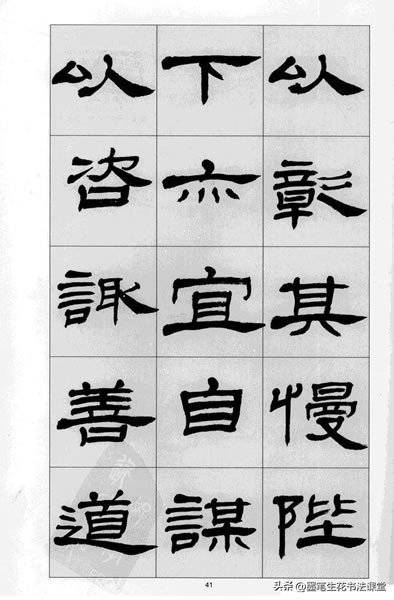 以彰其慢陛
下亦宜自謀
以咨諏善道
41
头条@墨笔生花书法课堂